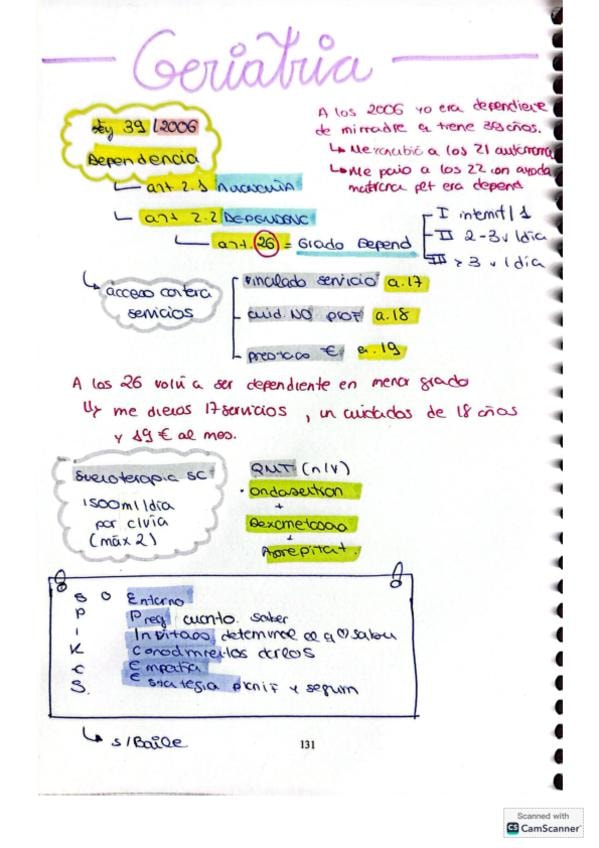 Geriatria
Ley 39/2006
Dependencia
A los 2006 yo era dependiente
de mi madre q tiene 39 años.
↳ Me a los 21 autónoma
↳ Me a los 22 con ayuda
pero era depend
↳ art 2.1 Autonomía
↳ art 2.2 DEPENDENC
↳ art. 26 = Grado Depend
I intermit/1
II 2-3 v/dia
III > 3 v/dia
↳ acceso cartera
servicios
vinculado servicio a.17
cuid. NO prof a.18
€ a.19
A los 26 volví a ser dependiente en menor grado
↳ me dieron 17 servicios, un cuidados de 18 años
y 19 € al mes.
Sueroterapia SC
1500ml/dia
por clvia
(máx 2)
QMT (n/v)
· Ondasetron
+
Dexametaso
+
Aprepitat.
S O Entorno
P Preg cuanto saber
I Invitacio determine el q saber
K Conocimientos
E Empatia
S. Estrategia planif y seguim
↳ s/Baile
131
Scanned with
CS CamScanner